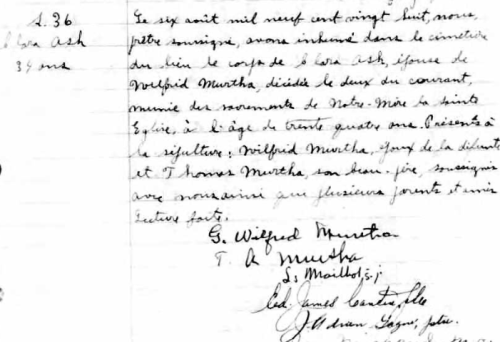 S. 36
Clara Ash
34 ans
Le six août mil neuf cent vingt huit, nous,
prêtre soussigné, avons inhumé dans le cimetière
du lieu le corps de Clara Ash, épouse de
Wilfrid Murtha, décédée le deux du courant,
munie des sacrements de Notre-Mère la sainte
Eglise, à l'âge de trente quatre ans. Présents à
la sépulture: Wilfrid Murtha, époux de la défunte
et Thomas Murtha, son beau-père, soussignés
avec nous ainsi que plusieurs parents et amis
Lecture faite.
G. Wilfred Murtha
T. A Murtha
S. j.
James
J. Adrien Gagné, ptre.